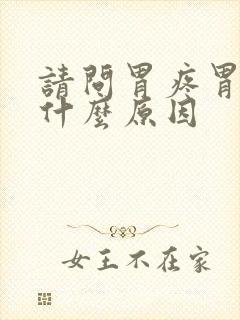 請問胃疼胃
什麼原因
女王不在家